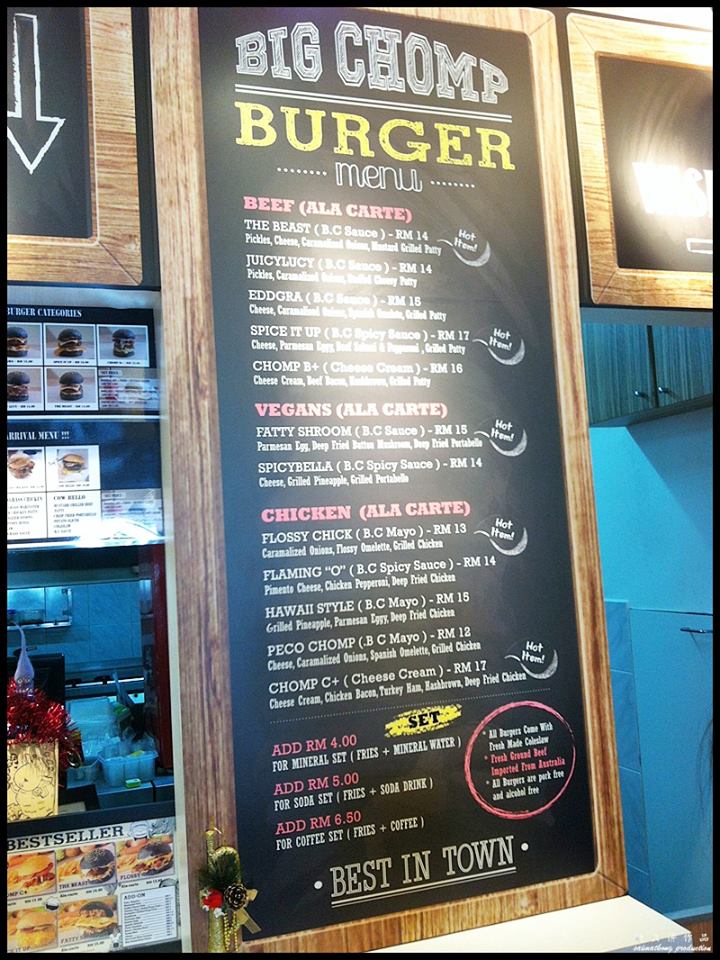 BIG CHOMP
BURGER
menu
BEEF (ALA CARTE)
THE BEAST ( B.C Sauce ) - RM 14
Pickles, Cheese, Caramalized Onions, Mustard Grilled Patty
Hot Item!
JUICYLUCY ( B.C Sauce ) - RM 14
Pickles, Caramalized Onions, Stuffed Cheesy Patty
EDDGRA ( B.C Sauce ) - RM 15
Cheese, Caramalized Onions, Spanish Omelette, Grilled Patty
SPICE IT UP ( B.C Spicy Sauce ) - RM 17
Cheese, Parmesan Eggy, Beef Salami & Pepperoni , Grilled Patty
Hot Item!
CHOMP B+ ( Cheese Cream ) - RM 16
Cheese Cream, Beef Bacon, Hashbrown, Grilled Patty
VEGANS (ALA CARTE)
FATTY SHROOM ( B.C Sauce ) - RM 15
Parmesan Egg, Deep Fried Button Mushroom, Deep Fried Portabello
Hot Item!
SPICYBELLA ( B.C Spicy Sauce ) - RM 14
Cheese, Grilled Pineapple, Grilled Portabello
CHICKEN (ALA CARTE)
FLOSSY CHICK ( B.C Mayo ) - RM 13
Caramalized Onions, Flossy Omelette, Grilled Chicken
Hot Item!
FLAMING "O" ( B.C Spicy Sauce ) - RM 14
Pimento Cheese, Chicken Pepperoni, Deep Fried Chicken
HAWAII STYLE ( B.C Mayo ) - RM 15
Grilled Pineapple, Parmesan Eggy, Deep Fried Chicken
PECO CHOMP (.B C Mayo ) - RM 12
Cheese, Caramalized Onions, Spanish Omelette, Grilled Chicken
CHOMP C+ ( Cheese Cream ) - RM 17
Cheese Cream, Chicken Bacon, Turkey Ham, Hashbrown, Deep Fried Chicken
Hot Item!
SET
ADD RM 4.00
FOR MINERAL SET ( FRIES + MINERAL WATER )
ADD RM 5.00
FOR SODA SET ( FRIES + SODA DRINK )
ADD RM 6.50
FOR COFFEE SET ( FRIES + COFFEE )
* All Burgers Come With
Fresh Made Coleslaw
* Fresh Ground Beef
Imported From Australia
* All Burgers are pork free
and alcohol free
• BEST IN TOWN •
BURGER CATEGORIES
ARRIVAL MENU !!!
COW BELLO
BESTSELLER
OMP C+
THE BEAST
FLOSSY
ADD-ON
FATTY
production